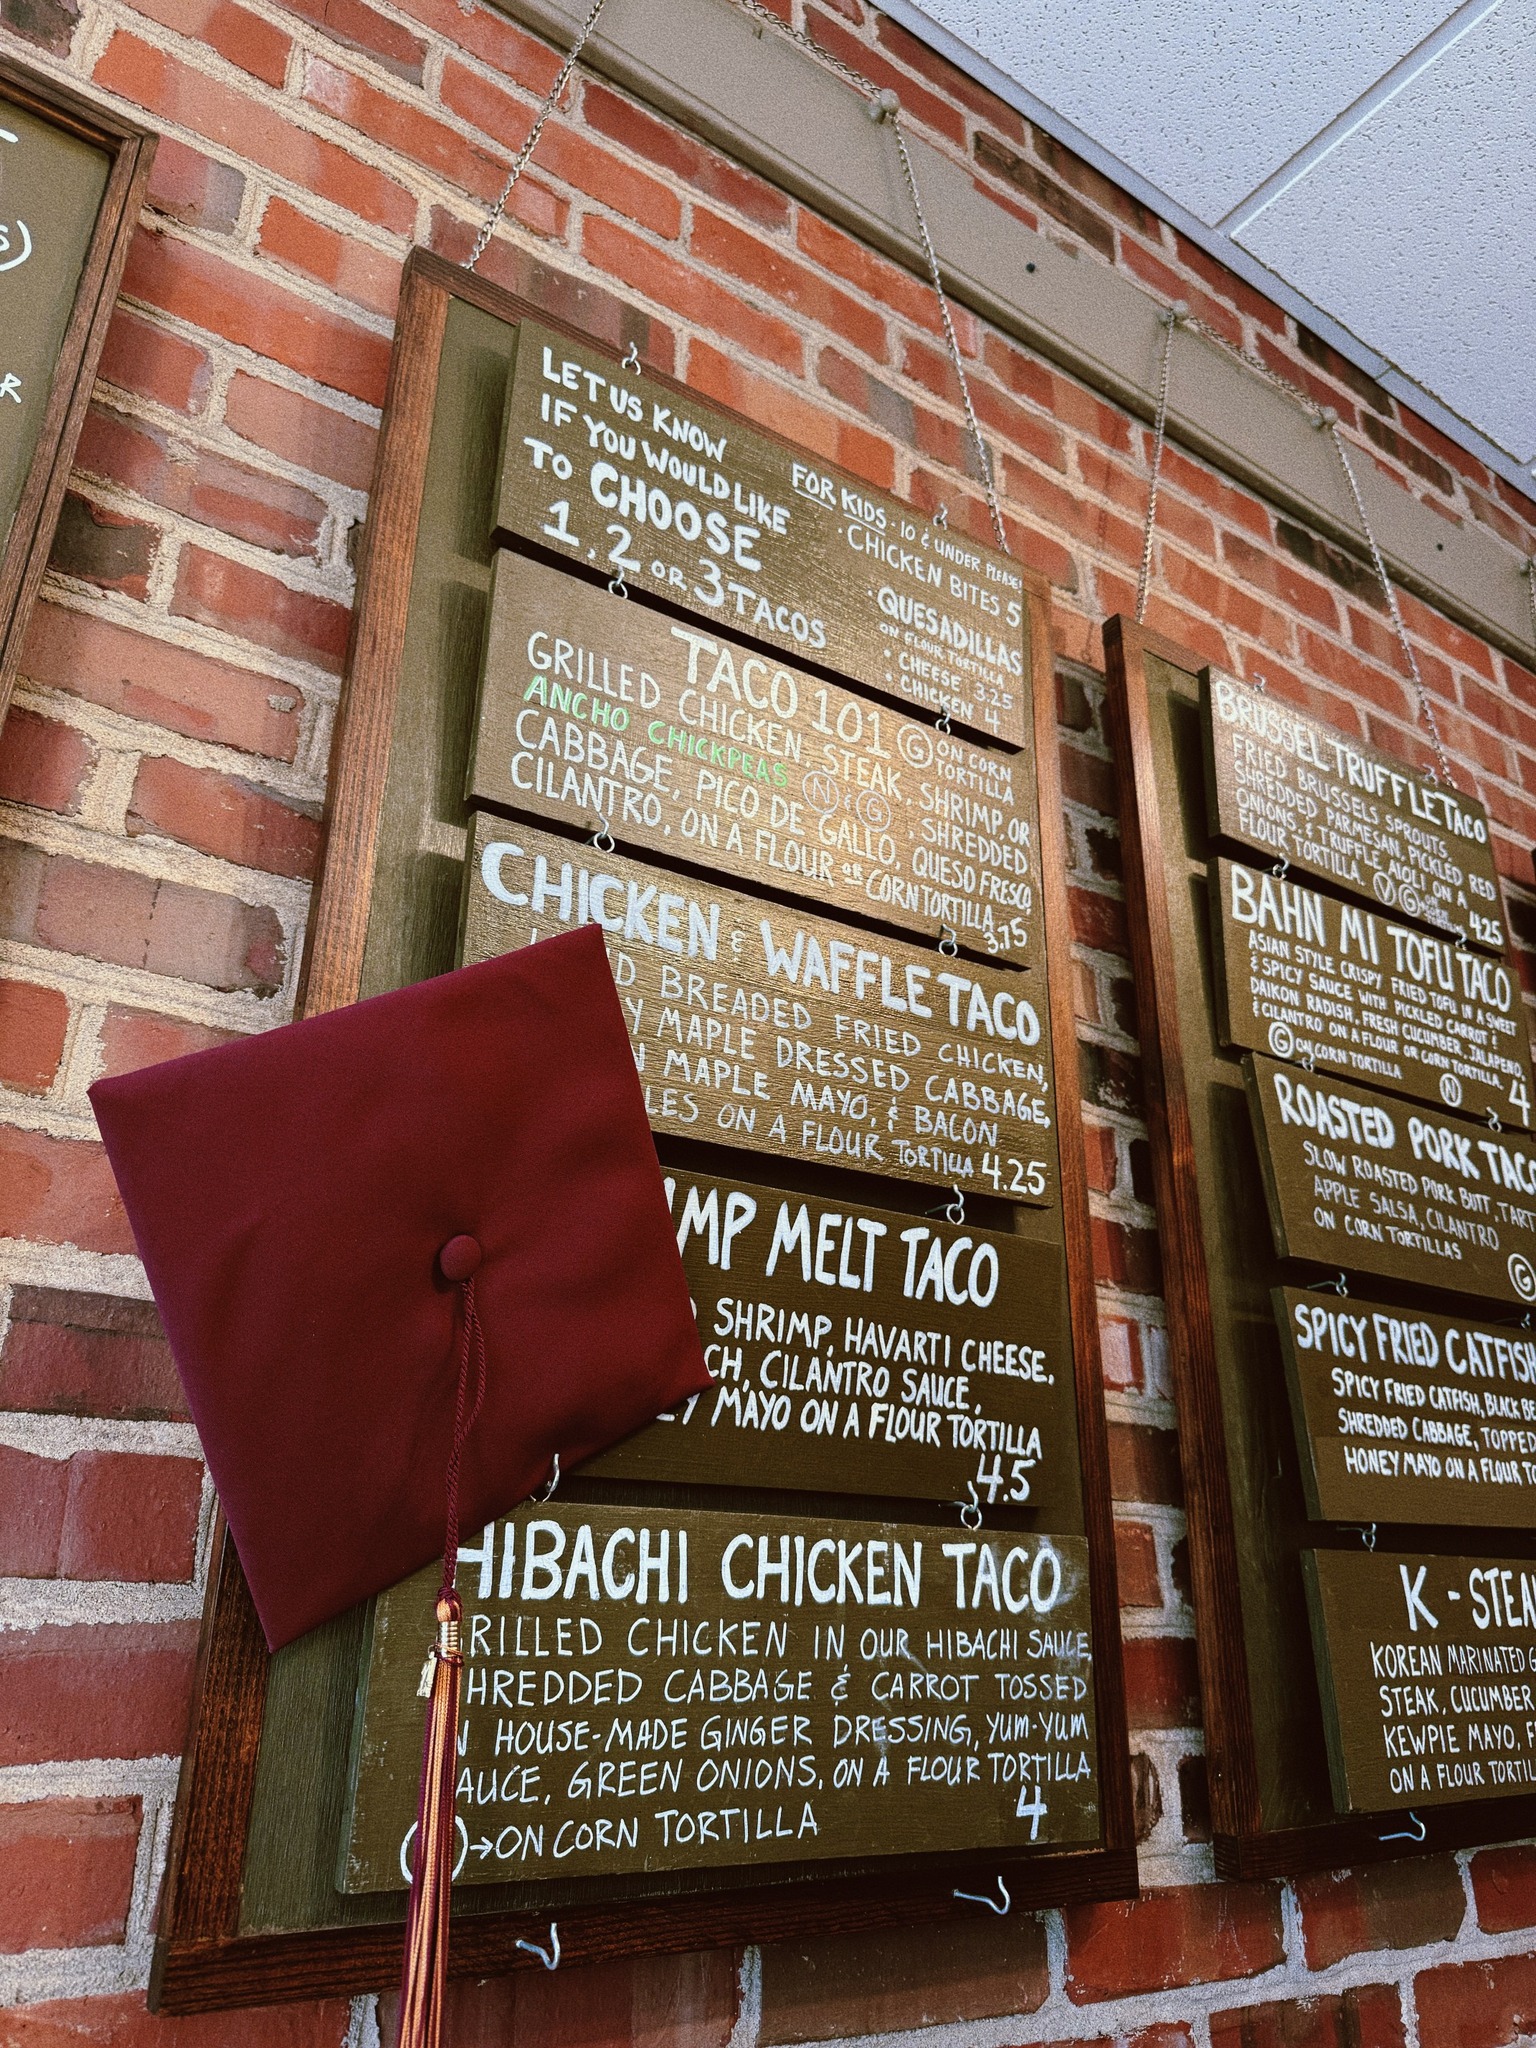 S)
R
LET US KNOW
IF YOU WOULD LIKE
TO CHOOSE
1, 2 OR 3 TACOS
FOR KIDS - 10 & UNDER PLEASE!
• CHICKEN BITES 5
• QUESADILLAS
ON FLOUR TORTILLA
• CHEESE 3.25
• CHICKEN 4
TACO 101 G ON CORN
TORTILLA
GRILLED CHICKEN, STEAK, SHRIMP, OR
ANCHO CHICKPEAS N & G, SHREDDED
CABBAGE, PICO DE GALLO, QUESO FRESCO,
CILANTRO, ON A FLOUR OR CORN TORTILLA
3.75
CHICKEN & WAFFLE TACO
D BREADED FRIED CHICKEN,
Y MAPLE DRESSED CABBAGE,
MAPLE MAYO, & BACON
LES ON A FLOUR TORTILLA 4.25
MP MELT TACO
SHRIMP, HAVARTI CHEESE,
CH, CILANTRO SAUCE,
EY MAYO ON A FLOUR TORTILLA
4.5
HIBACHI CHICKEN TACO
RILLED CHICKEN IN OUR HIBACHI SAUCE
HREDDED CABBAGE & CARROT TOSSED
N HOUSE-MADE GINGER DRESSING, YUM-YUM
AUCE, GREEN ONIONS, ON A FLOUR TORTILLA
→ ON CORN TORTILLA 4
BRUSSEL TRUFFLE TACO
FRIED BRUSSELS SPROUTS,
SHREDDED PARMESAN, PICKLED RED
ONIONS, & TRUFFLE AIOLI ON A
FLOUR TORTILLA. V G 4.25
BAHN MI TOFU TACO
ASIAN STYLE CRISPY FRIED TOFU IN A SWEET
& SPICY SAUCE WITH PICKLED CARROT &
DAIKON RADISH, FRESH CUCUMBER, JALAPENO,
& CILANTRO ON A FLOUR OR CORN TORTILLA.
G ON CORN TORTILLA N 4
ROASTED PORK TACO
SLOW ROASTED PORK BUTT, TART
APPLE SALSA, CILANTRO
ON CORN TORTILLAS G
SPICY FRIED CATFISH
SPICY FRIED CATFISH, BLACK BE
SHREDDED CABBAGE, TOPPED
HONEY MAYO ON A FLOUR TO
K - STEA
KOREAN MARINATED G
STEAK, CUCUMBER
KEWPIE MAYO, F
ON A FLOUR TORTIL